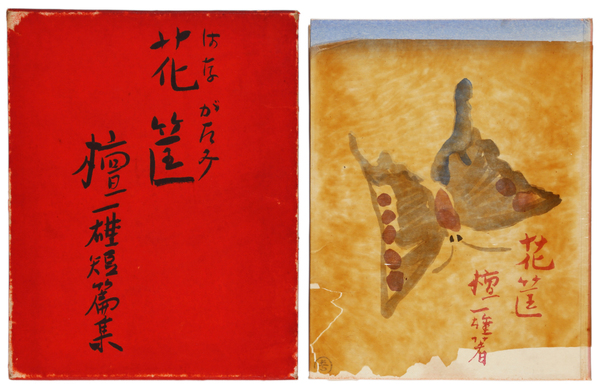 花筐
はながたみ
檀一雄短篇集
花筐
檀一雄著